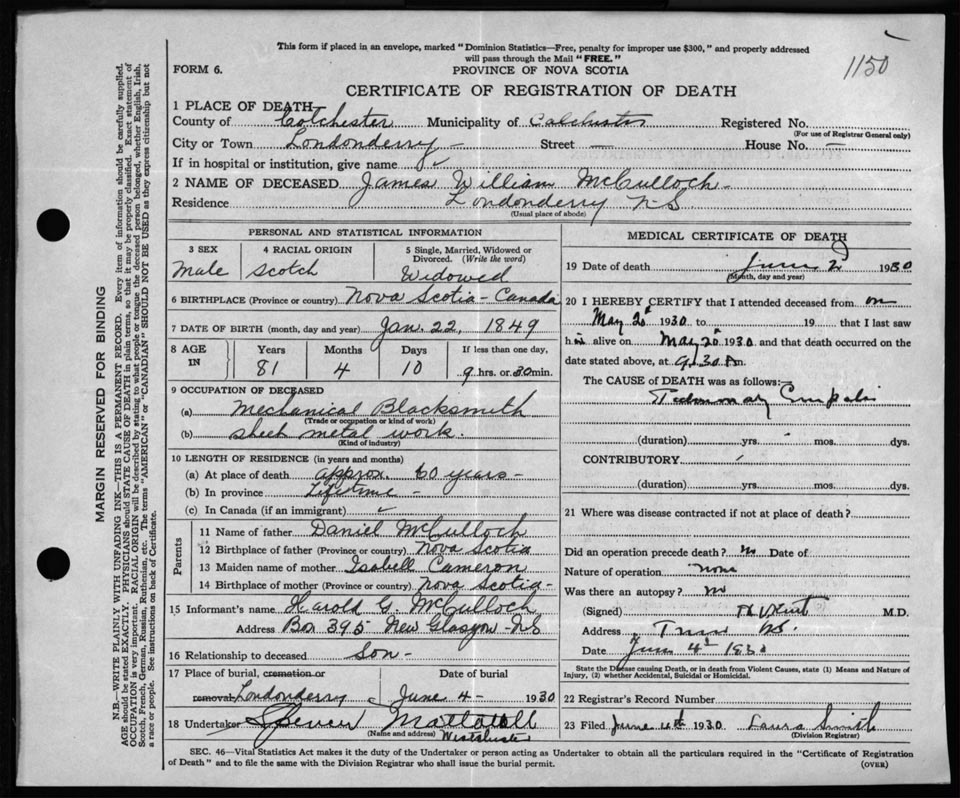 This form if placed in an envelope, marked "Dominion Statistics—Free, penalty for improper use $300," and properly addressed
will pass through the Mail "FREE."
1150
FORM 6.
PROVINCE OF NOVA SCOTIA
CERTIFICATE OF REGISTRATION OF DEATH
1 PLACE OF DEATH
County of Colchester Municipality of Colchester Registered No.
(For use of Registrar General only)
City or Town Londonderry - Street — House No. —
If in hospital or institution, give name ✓
2 NAME OF DECEASED James William McCulloch -
Residence Londonderry N-S
(Usual place of abode)
PERSONAL AND STATISTICAL INFORMATION
3 SEX 4 RACIAL ORIGIN 5 Single, Married, Widowed or
Divorced. (Write the word)
Male Scotch Widowed
6 BIRTHPLACE (Province or country) Nova Scotia - Canada
7 DATE OF BIRTH (month, day and year) Jan. 22, 1849
8 AGE IN Years Months Days If less than one day,
81 4 10 9 hrs. or 30 min.
9 OCCUPATION OF DECEASED
(a) Mechanical Blacksmith
(Trade or occupation or kind of work)
(b) sheet metal work.
(Kind of industry)
10 LENGTH OF RESIDENCE (in years and months)
(a) At place of death approx. 60 years -
(b) In province Lifetime -
(c) In Canada (if an immigrant) ✓
Parents
11 Name of father Daniel McCulloch
12 Birthplace of father (Province or country) Nova Scotia
13 Maiden name of mother Isabell Cameron
14 Birthplace of mother (Province or country) Nova Scotia -
15 Informant's name Harold G. McCulloch
Address Box 395 New Glasgow - NS
16 Relationship to deceased Son -
17 Place of burial, cremation or Date of burial
removal Londonderry June 4 - 1930
18 Undertaker Spencer
(Name and address) Westchester
MEDICAL CERTIFICATE OF DEATH
19 Date of death June 2 1930
(Month, day and year)
20 I HEREBY CERTIFY that I attended deceased from on
May 20 1930 to 19 that I last saw
him alive on May 20 1930 and that death occurred on the
date stated above, at 9.30 P.m.
The CAUSE OF DEATH was as follows:—
Pulmonary
(duration) yrs. mos. dys.
CONTRIBUTORY
(duration) yrs. mos. dys.
21 Where was disease contracted if not at place of death?
Did an operation precede death? No Date of
Nature of operation None
Was there an autopsy? No
(Signed) M.D.
Address Truro N.S.
Date June 4th 1930
State the Disease causing Death, or in death from Violent Causes, state (1) Means and Nature of
Injury, (2) whether Accidental, Suicidal or Homicidal.
22 Registrar's Record Number
23 Filed June 4th 1930 Laura Smith
(Division Registrar)
SEC. 46—Vital Statistics Act makes it the duty of the Undertaker or person acting as Undertaker to obtain all the particulars required in the "Certificate of Registration
of Death" and to file the same with the Division Registrar who shall issue the burial permit.
(OVER)
MARGIN RESERVED FOR BINDING
N.B.—WRITE PLAINLY WITH UNFADING INK—THIS IS A PERMANENT RECORD. Every item of information should be carefully supplied.
AGE should be stated EXACTLY. PHYSICIANS should STATE CAUSE OF DEATH in plain terms, so that it may be properly classified. Exact statement of
OCCUPATION is very important. RACIAL ORIGIN will be described by stating to what people or tongue the deceased person belonged, whether English, Irish,
Scotch, French, German, Russian, Ruthenian, etc. The terms "AMERICAN" or "CANADIAN" SHOULD NOT BE USED as they express citizenship but not
a race or people. See instructions on back of Certificate.